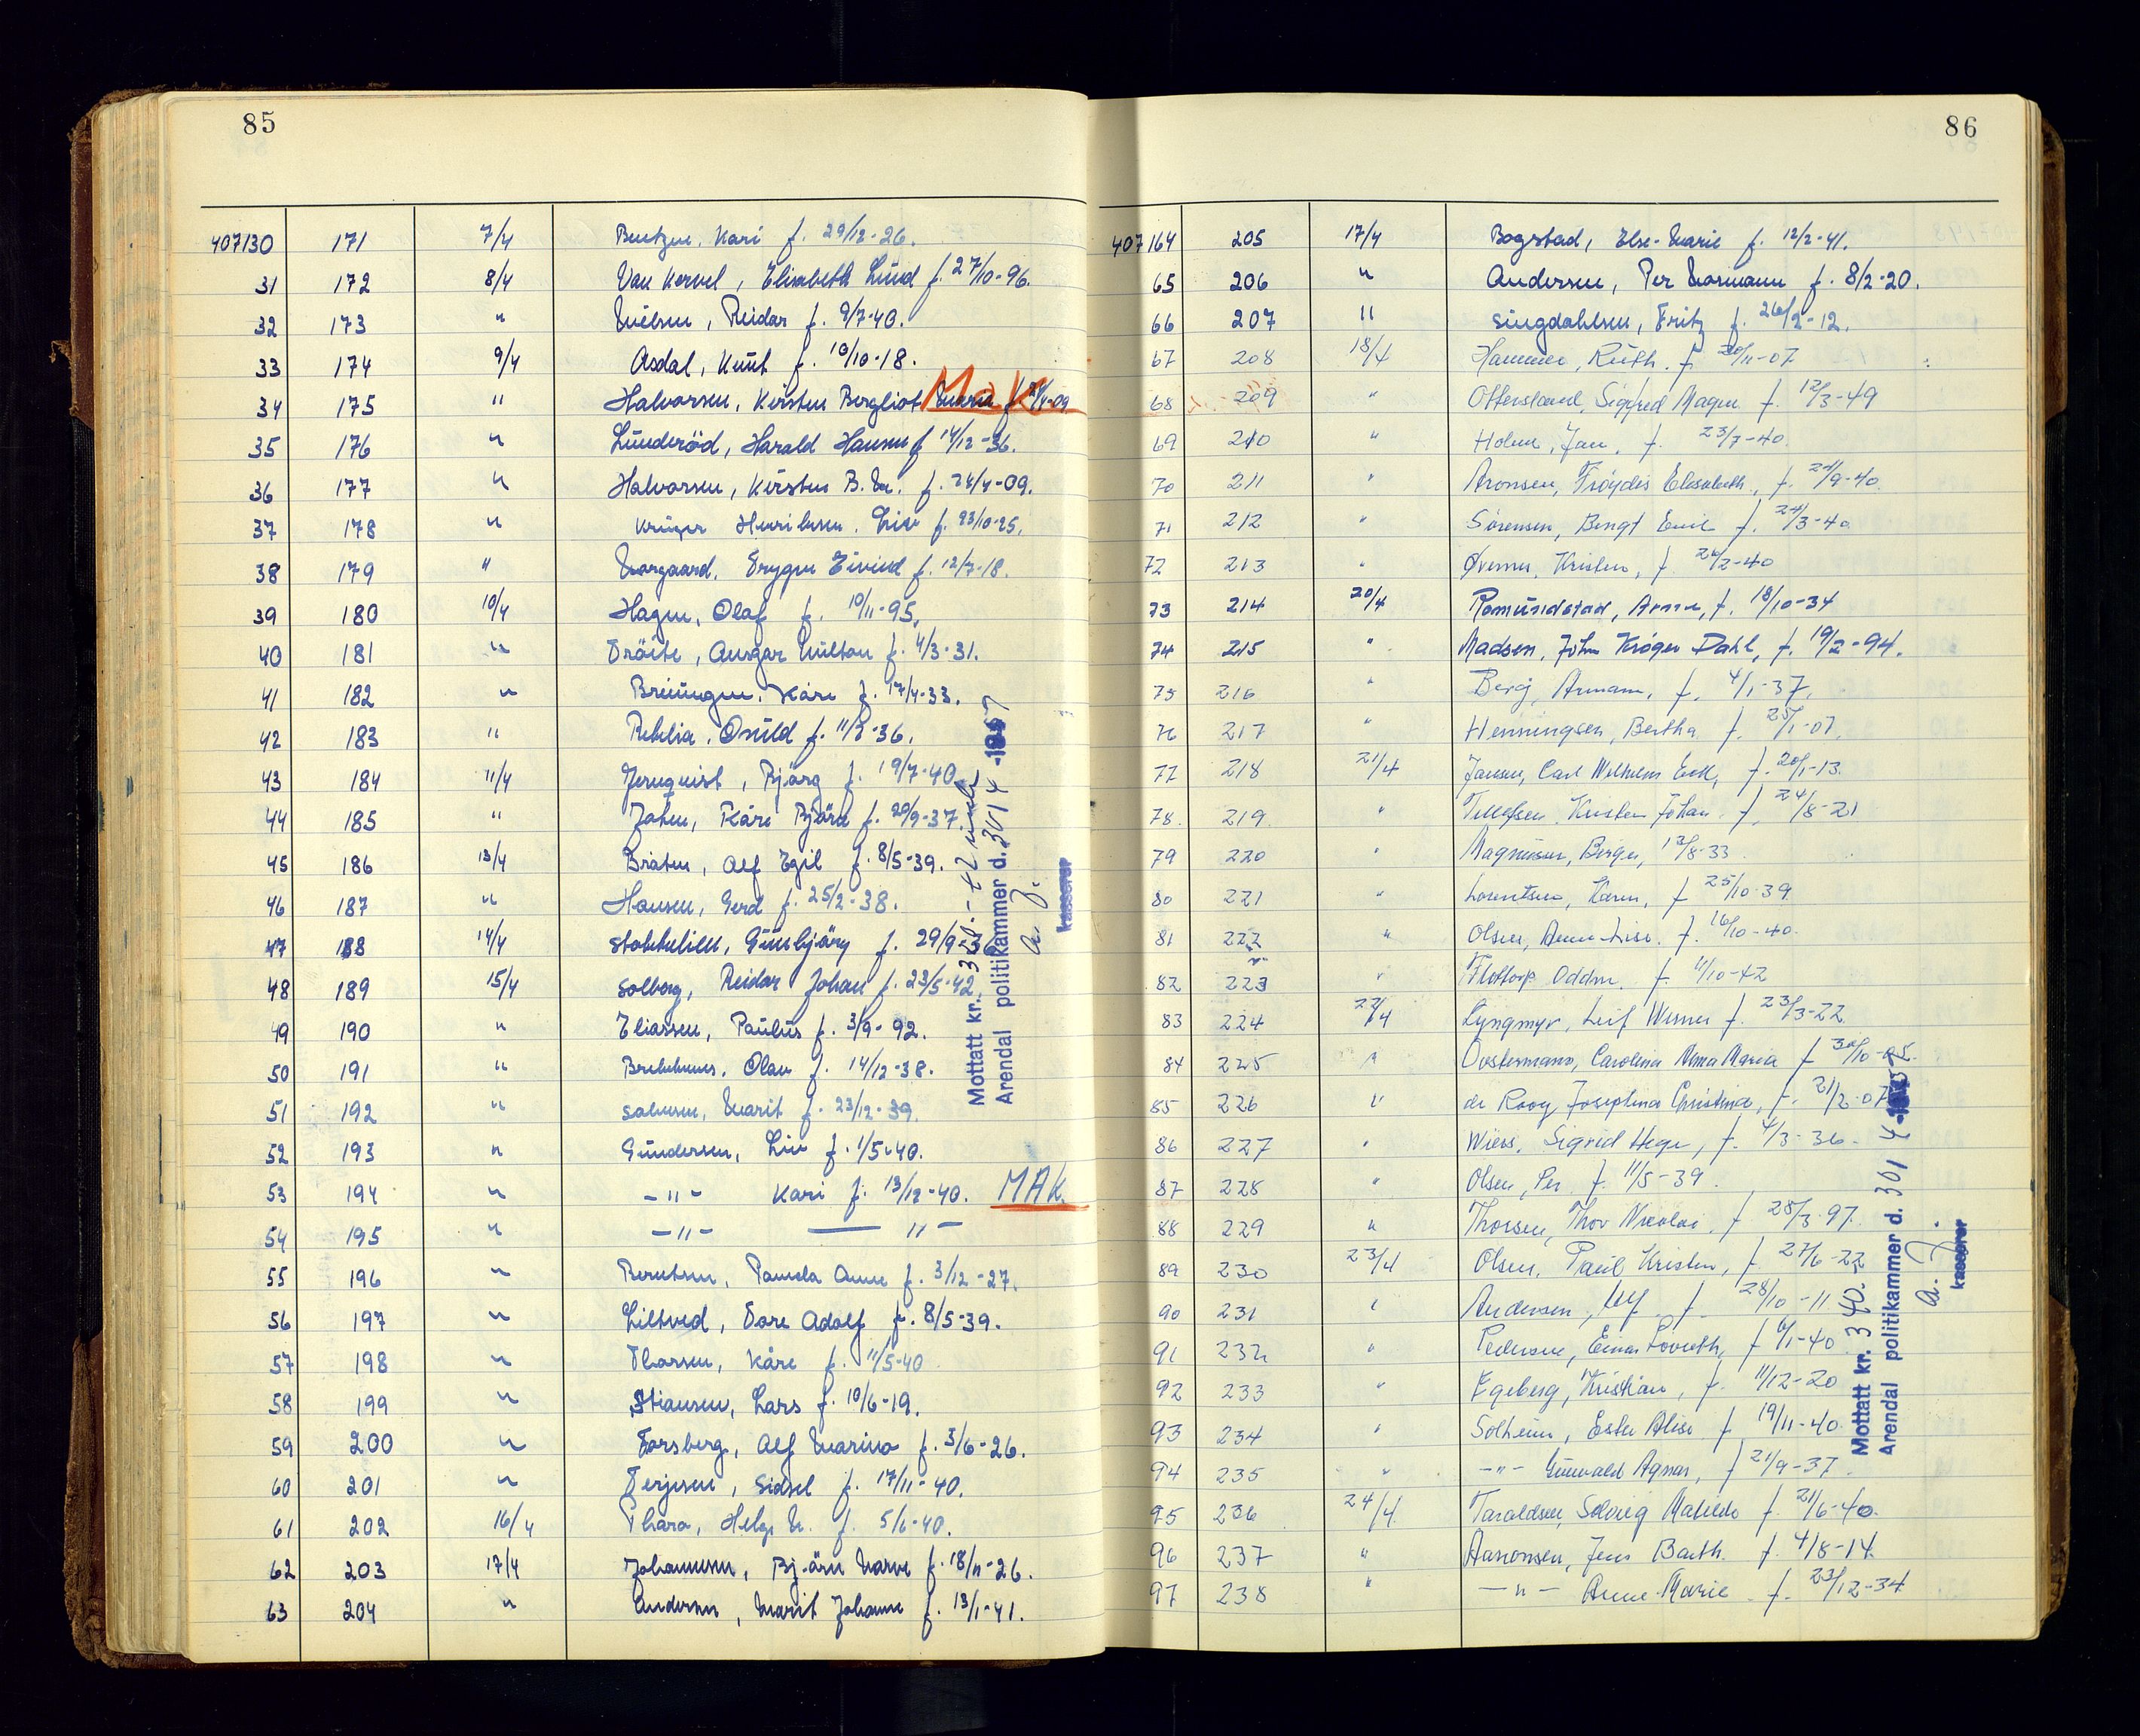 85
407130 171 7/4 Bentzen, Kari f. 29/12-26.
31 172 8/4 Van Kervel, Elisabeth Lund f. 27/10-96.
32 173 " Nielsen, Reidar f. 9/7-40.
33 174 9/4 Asdal, Knut f. 10/10-18.
34 175 " Halvorsen, Kirsten Bergliot Marie f. 24/4-09 MAK
35 176 " Lunderöd, Harald Hansen f 14/12-36.
36 177 " Halvorsen, Kirsten B. M. f. 24/4-09.
37 178 " Krüger Henriksen. Liv f. 23/10-25.
38 179 " Norgaard, Trygve Eivind f. 12/7-18.
39 180 10/4 Hagen, Olaf f. 10/11-95.
40 181 " Tråite, Ansgar Milton f. 4/3-31.
41 182 " Breiungen, Kåre f. 17/4-33.
42 183 " Rebelia, Osuld f. 11/2-36.
43 184 11/4 Jernquist, Bjørg f. 19/7-40
44 185 " Johne, Kåre Bjørn f. 20/9-37.
45 186 13/4 Bråten, Alf Egil f. 8/5-39.
46 187 " Hansen, Gerd f. 25/2-38.
47 188 14/4 Stokkelien, Gunbjörg f. 29/9-36
48 189 15/4 Solborg, Reidar Johan f. 23/5-42.
49 190 " Eliassen, Paulus f. 3/9-92.
50 191 " Brekkhus, Olav f. 14/12-38.
51 192 " Salvesen, Marit f. 23/12-39.
52 193 " Gundersen, Liv f. 1/5-40.
53 194 " -"- Kari f. 13/12-40. MAK.
54 195 " -"- — " -
55 196 " Berntsen, Pamela Anne f. 3/12-27.
56 197 " Liltved, Tore Adolf f. 8/5-39.
57 198 " Thorsen, Kåre f. 11/5-40
58 199 " Stiansen, Lars f. 10/6-19.
59 200 " Torsberg, Alf Marino f. 3/6-26.
60 201 " Terjesen, Sidsel f. 17/11-40.
61 202 16/4 Thoro, Helge M. f. 5/6-40.
62 203 17/4 Johannesen, Bjørn Narve f. 18/11-26.
63 204 " Andersen, Marit Johanne f. 13/1-41.
Mottatt kr.
Arendal politikammer d. 30/4 -1957
a. J.
kasserer
86
407164 205 17/4 Bogstad, Else-Marie f. 12/2-41.
65 206 " Andersen, Per Normann f. 8/2-20.
66 207 " Singdahlsen, Fritz f. 26/2-12.
67 208 18/4 Hammer, Ruth. f. 20/11-07
68 209 " Ottersland, Sigfred Magne f. 12/3-49
69 210 " Holm, Jan, f. 23/7-40.
70 211 " Aronsen, Frøydis Elisabeth, f. 21/9-40.
71 212 " Sørensen, Bengt Emil f. 24/3-40
72 213 " Øvernes, Kristen, f. 24/2-40
73 214 20/4 Romundstad, Arne, f. 18/10-34
74 215 " Madsen, John Krøger Dahl, f. 19/2-94.
75 216 " Berg, Armann, f. 4/1-37.
76 217 " Henningsen, Bertha f. 25/1-07.
77 218 21/4 Jansen, Carl Wilhelm Eck, f. 20/1-13.
78. 219 " Tellefsen Kristen Johan f. 24/8-21
79 220 " Magnussen, Berger, 13/8-33
80 221 " Lorentsen, Karin, f 25/10-39
81 222 " Olsen, Anne-Lise. f. 16/10-40.
82 223 " Flottorp Oddm. f. 4/10-42
83 224 22/4 Lyngmyr, Leif Werner f. 23/3-22
84 225 " Oostermann, Carolina Anna Maria f 30/10-05.
85 226 " de Rooy Josephina Christina, f. 21/2-07
86 227 " Wiers, Sigrid Hege, f. 4/3-36.
87 228 " Olsen, Per f. 11/5-39.
88 229 " Thorsen, Thor Nicolai, f 28/3-97.
89 230 23/4 Olsen, Paul Kristen, f. 27/6-22
90 231 " Andersen, Ulf f 28/10-11
91 232 " Pedersen, Einar Lovreth, f 6/1-40
92 233 " Egeberg, Kristian, f. 11/12-20
93 234 " Solheim, Ester Alise f 19/11-40.
94 235 " -"- Gunvald Agnar, f 21/9-37.
95 236 24/4 Taraldsen, Solveig Matilde f. 21/6-40.
96 237 " Aanonsen, Jens Barth. f. 4/8-14.
97 238 " -"- Anne-Marie f. 23/12-34
Mottatt kr. 340.-
Arendal politikammer d. 30/4
a. J.
kasserer